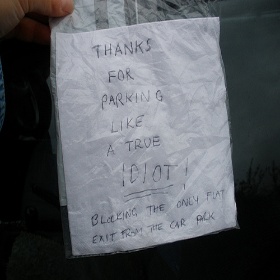 THANKS
FOR
PARKING
LIKE
A TRUE
IDIOT!
BLOCKING THE ONLY FLAT
EXIT FROM THE CAR PARK